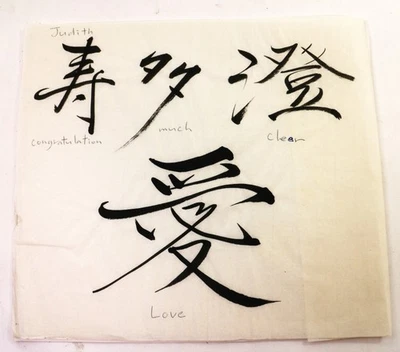 Judith
寿 多 澄
congratulation much clear
愛
Love